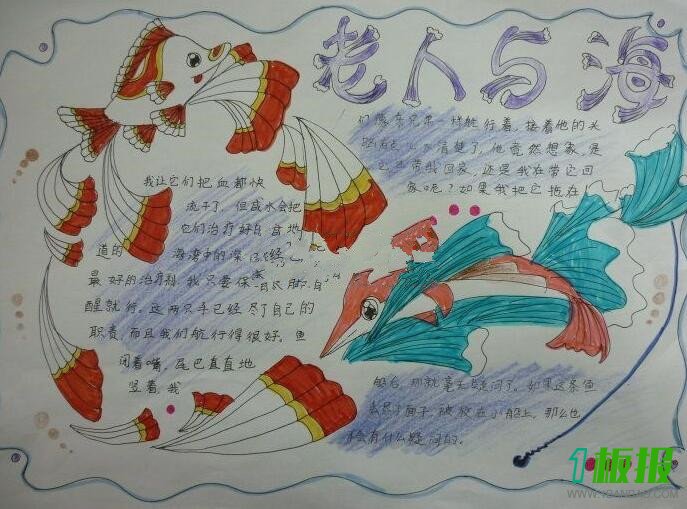 老人与海
们像亲兄弟一样航行着,接着他的头
清楚了,他竟然想家,是
它在带我回家,还是我在带它回
家呢?如果我把它拖在
我让它们把血都快
流干了,但咸水会把
它们治疗好的
道的 海湾中的深
最好的治疗剂,我只要保
醒就行。这两只手已经尽了自己的
职责,而且我们航行得很好。鱼
闭着嘴,尾巴直直地
竖着,我
船后,那就毫无疑问了。如果这条鱼
丢尽了面子,被放在小船上,那么也
会有什么疑问的。
1板报
WWW.1BANBAO.COM